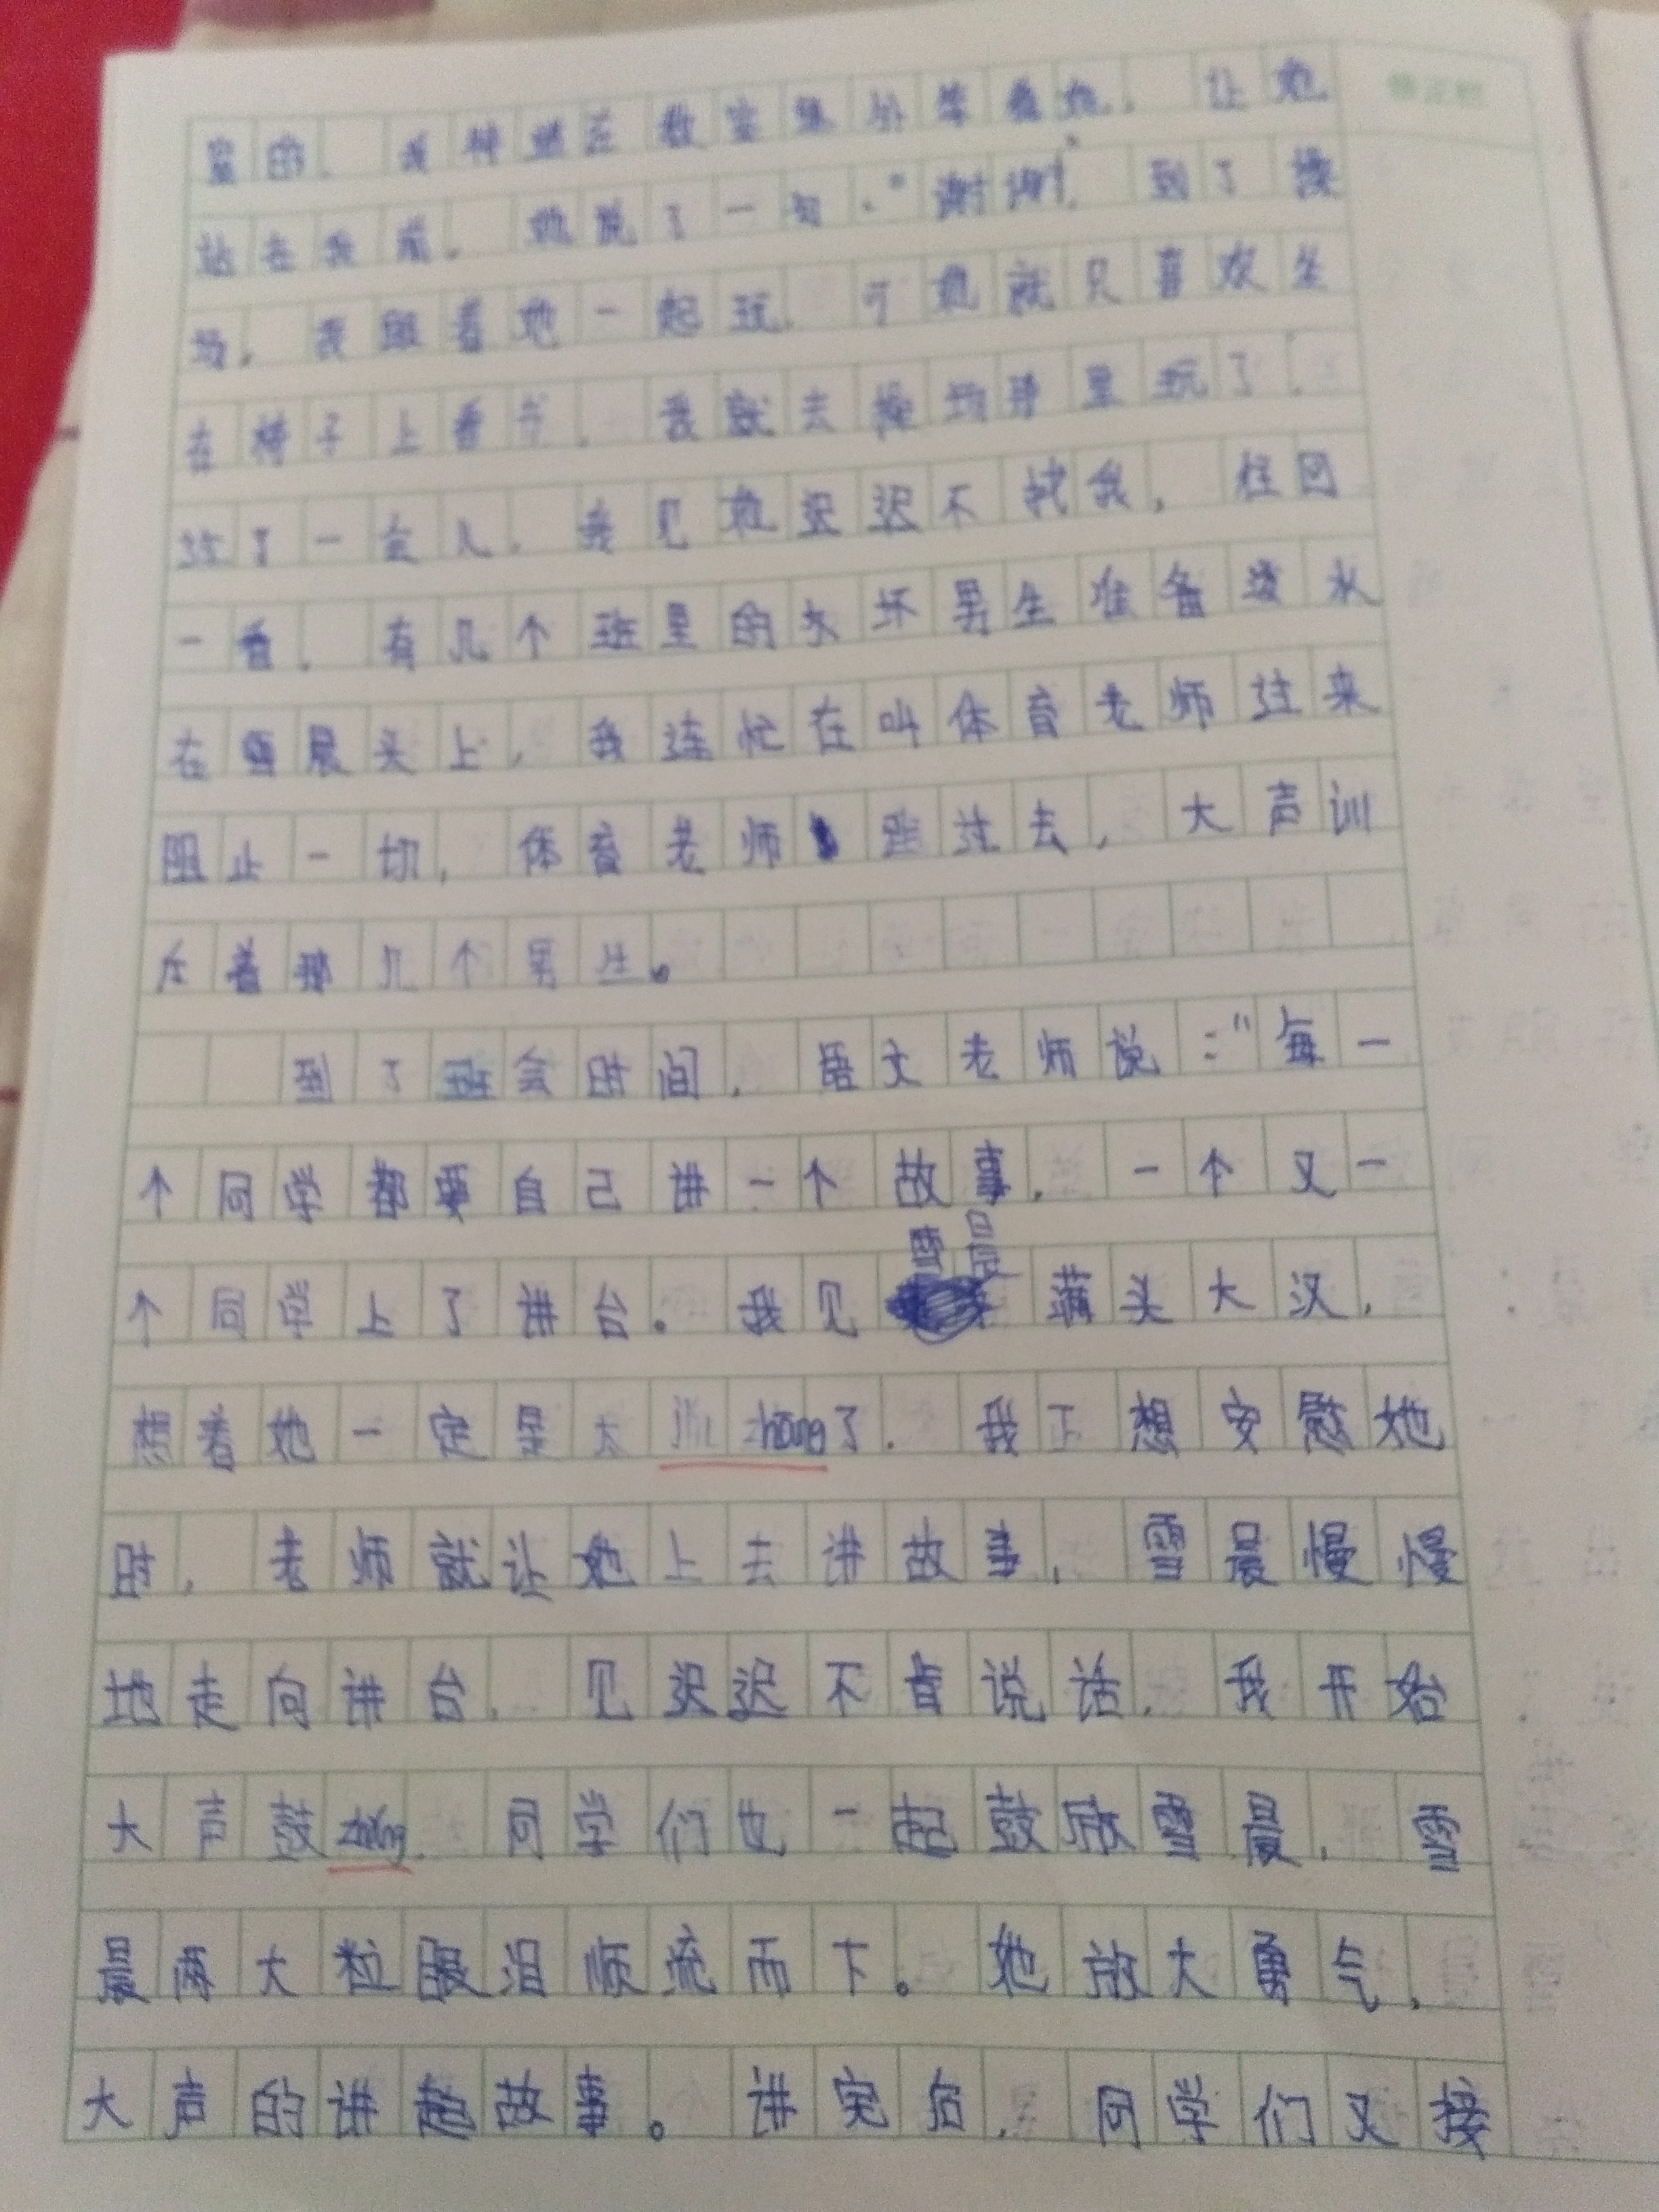 室的，我特地在教室集外等着她，让她
站在我前，她说了一句：“谢谢”，到了操
场，我跟着她一起玩，可她就只喜欢坐
在椅子上看书，我就去操场那里玩了，
过了一会儿，我见她迟迟不找我，往回
一看，有几个班里的大坏男生准备泼水
在雪晨头上，我连忙在叫体育老师过来
阻止一切，体育老师跑过去，大声训
斥着那几个男生。
到了班会时间，语文老师说：“每一
个同学都要自己讲一个故事，一个又一
个同学上了讲台。我见雪晨满头大汉，
想着她一定是太zhāng了，我正想安慰她
时，老师就让她上去讲故事，雪晨慢慢
地走向讲台，见迟迟不肯说话，我开始
大声鼓zhǎng，同学们也一起鼓励雪晨，雪
晨两大粒眼泪顺流而下。她放大勇气，
大声的讲起故事。讲完后，同学们又接